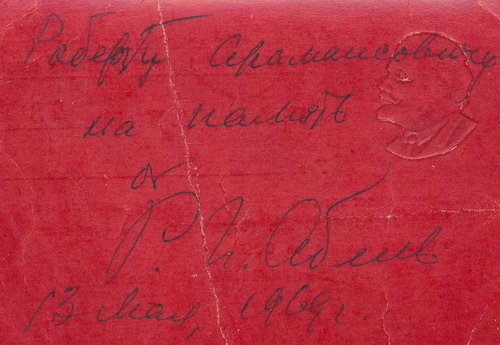 Роберту Арамаисовичу
на память
от
Р. И. Абель
13 мая, 1969г.